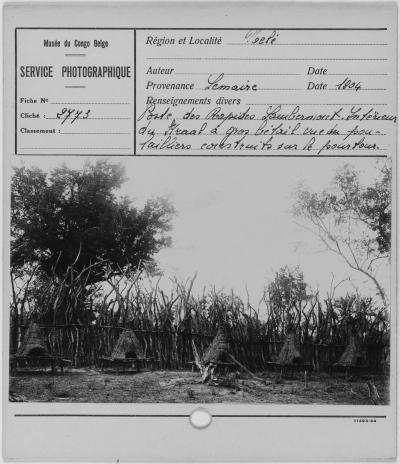 Musée du Congo Belge
SERVICE PHOTOGRAPHIQUE
Fiche No
Cliché : 2773
Classement :
Région et Localité
Auteur Date
Provenance Lemaire Date 1904
Renseignements divers
Poste des Rapides Lambermont. Intérieur
du Kraal à gros bétail vue des pou-
laillers construits sur le pourtour.